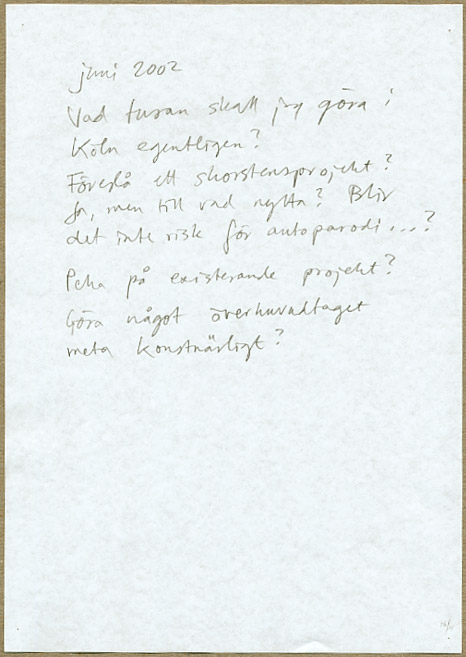 juni 2002
Vad fusan skall jag göra i
Köln egentligen?
Föreslå ett skorstensprojekt?
Ja, men till vad nytta? Blir
det inte risk för autoparodi...?
Peka på existerande projekt?
Göra något överhuvudtaget
meta konstnärligt?